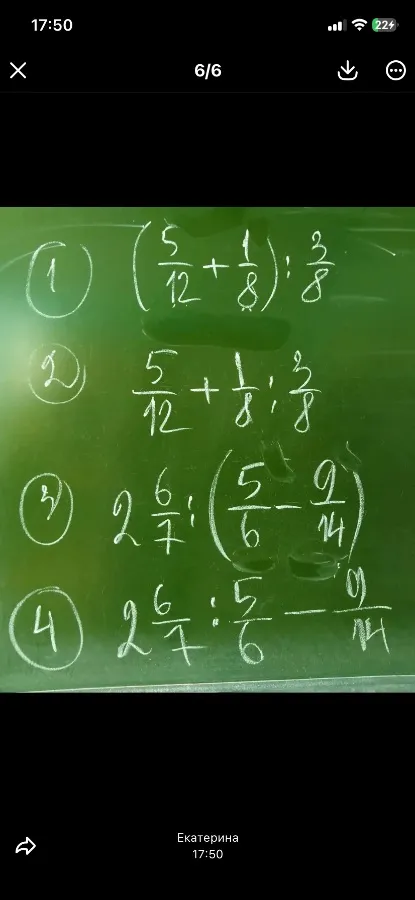 17:50 22
6/6
1 (5/12 + 1/8) : 3/8
2 5/12 + 1/8 : 3/8
3 2 6/7 : (5/6 - 9/14)
4 2 6/7 : 5/6 - 9/14
Екатерина
17:50